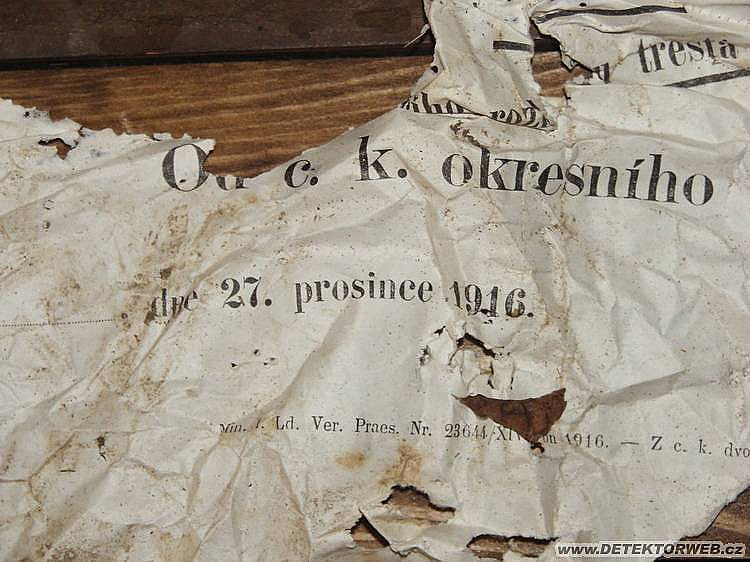 tresta
Od c. k. okresního
dne 27. prosince 1916.
Min. f. Ld. Ver. Praes. Nr. 23644/XIV von 1916. — Z c. k. dvo
www.DETEKTORWEB.cz